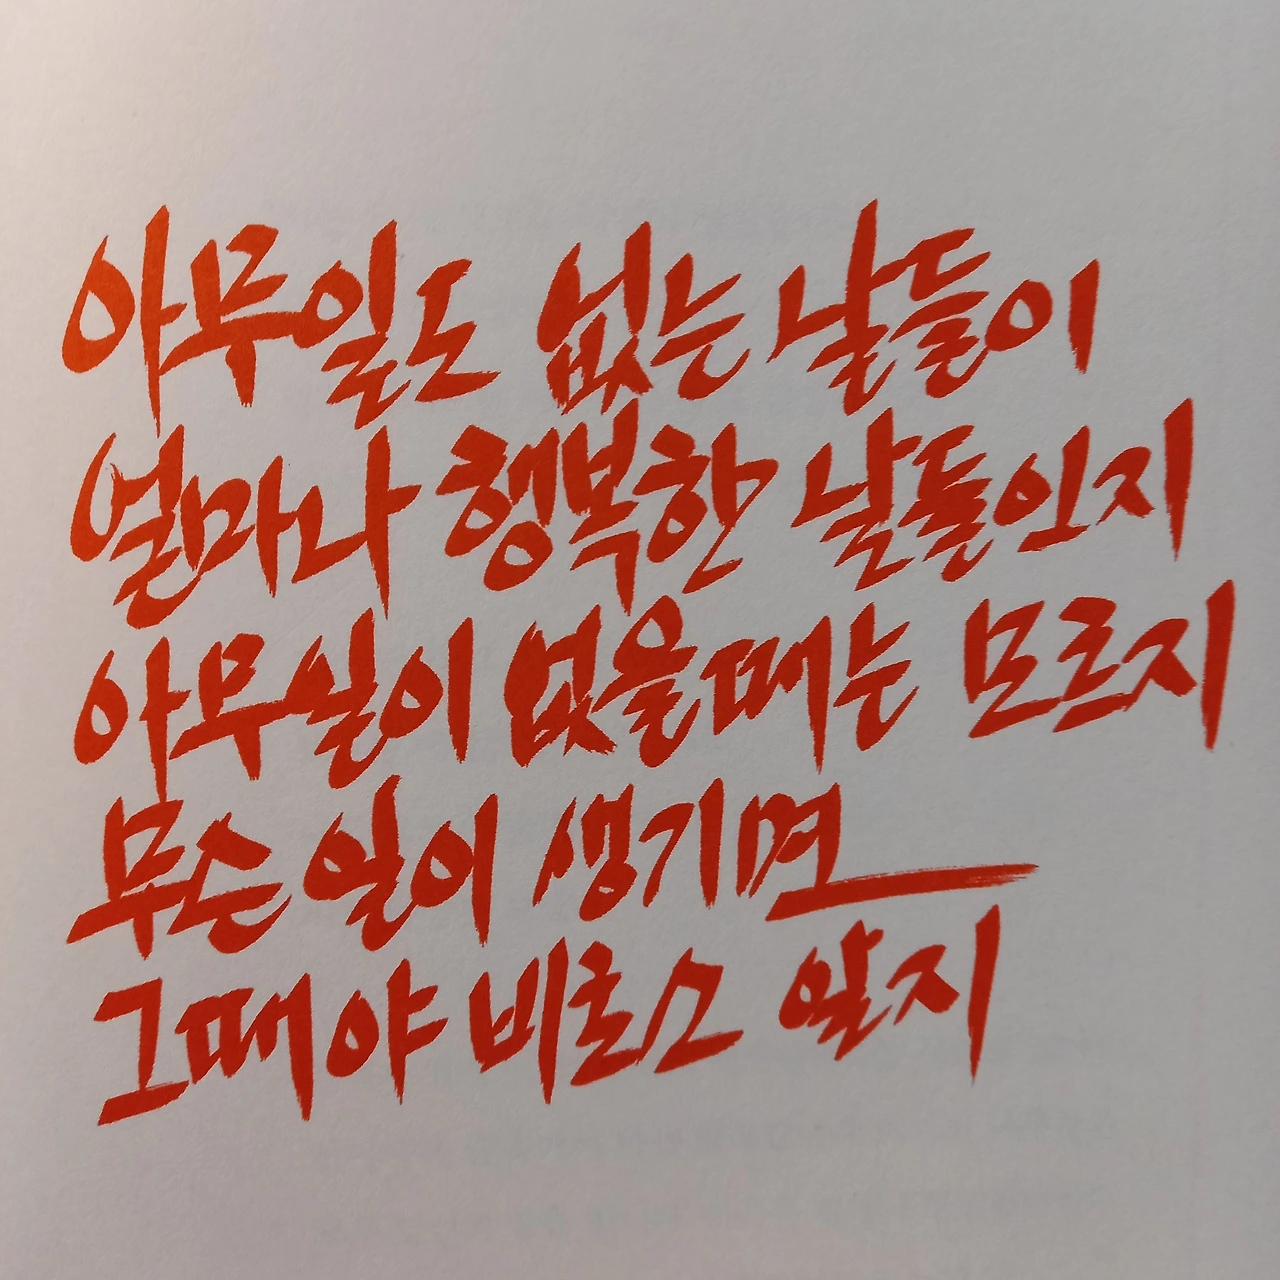 아무일도 없는 날들이
얼마나 행복한 날들인지
아무일이 없을때는 모르지
무슨 일이 생기면
그때야 비로소 알지